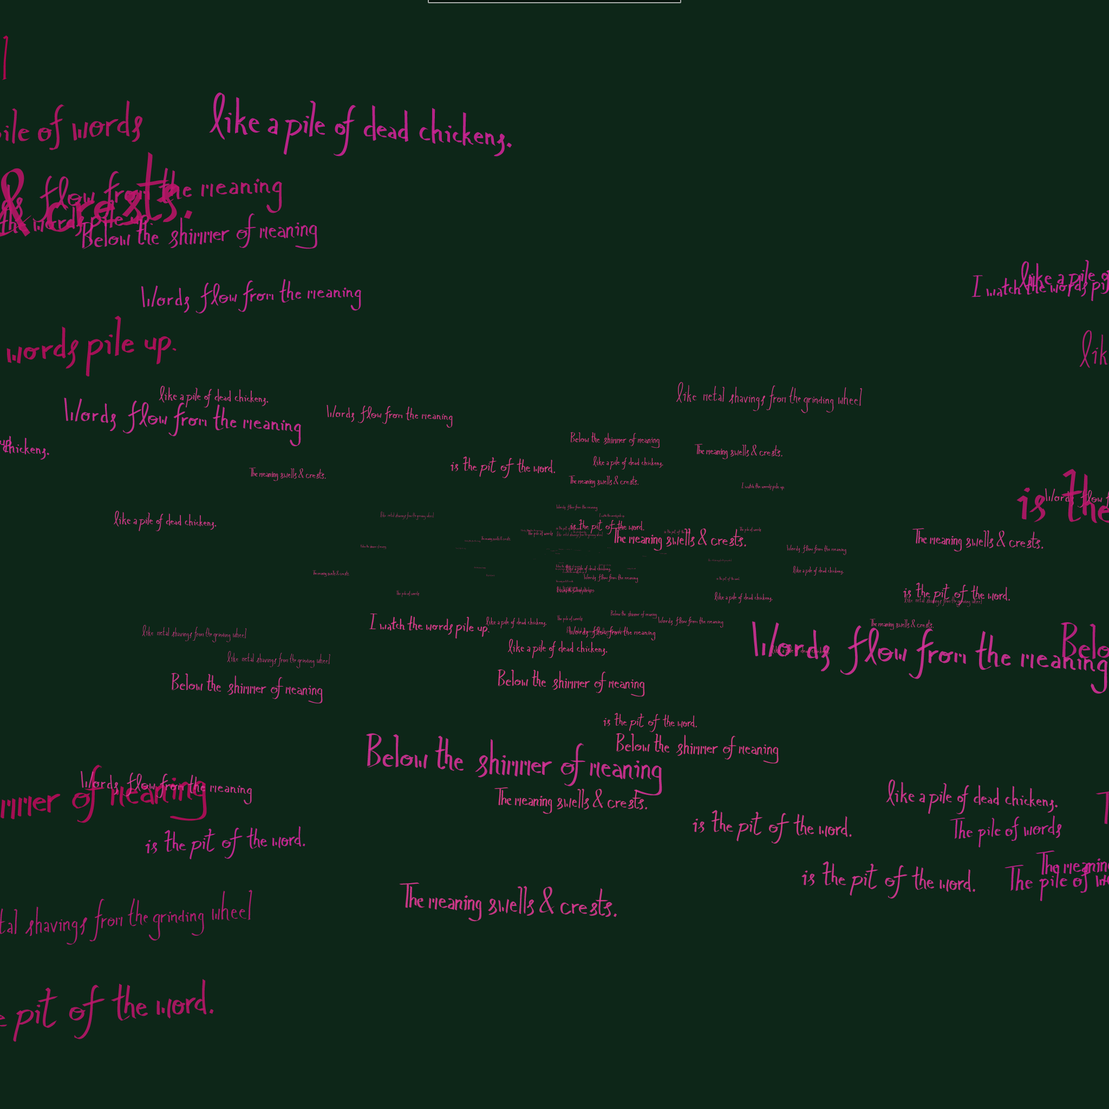 ile of words
like a pile of dead chickens.
flow from the meaning
& crests.
the words pile up.
Below the shimmer of meaning
Words flow from the meaning
like a pile of
I watch the words pi
words pile up.
lik
like a pile of dead chickens.
like metal shavings from the grinding wheel
Words flow from the meaning
Words flow from the meaning
Below the shimmer of meaning
chickens.
The meaning swells & crests.
is the pit of the word.
like a pile of dead chickens.
The meaning swells & crests.
The meaning swells & crests.
I watch the words pile up.
is the
Words flow
like metal shavings from the grinding wheel
Words flow from the meaning
like a pile of dead chickens.
is the pit of the word.
The meaning swells & crests.
The meaning swells & crests.
Words flow from the meaning
like a pile of dead chickens.
like a pile of dead chickens.
Words flow from the meaning
The meaning swells & crests.
The pile of words
is the pit of the word.
like a pile of dead chickens.
Below the shimmer of meaning
I watch the words pile up.
like a pile of dead chickens.
Words flow from the meaning
The meaning swells & crests.
like metal shavings from the grinding wheel
Words flow from the meaning
Words flow from the meaning
Belo
like a pile of dead chickens.
like metal shavings from the grinding wheel
Below the shimmer of meaning
Below the shimmer of meaning
is the pit of the word.
Below the shimmer of meaning
Below the shimmer of meaning
Words flow from the meaning
mmer of meaning
The meaning swells & crests.
like a pile of dead chickens.
is the pit of the word.
The pile of words
is the pit of the word.
The meanin
is the pit of the word.
The pile of w
The meaning swells & crests.
tal shavings from the grinding wheel
pit of the word.